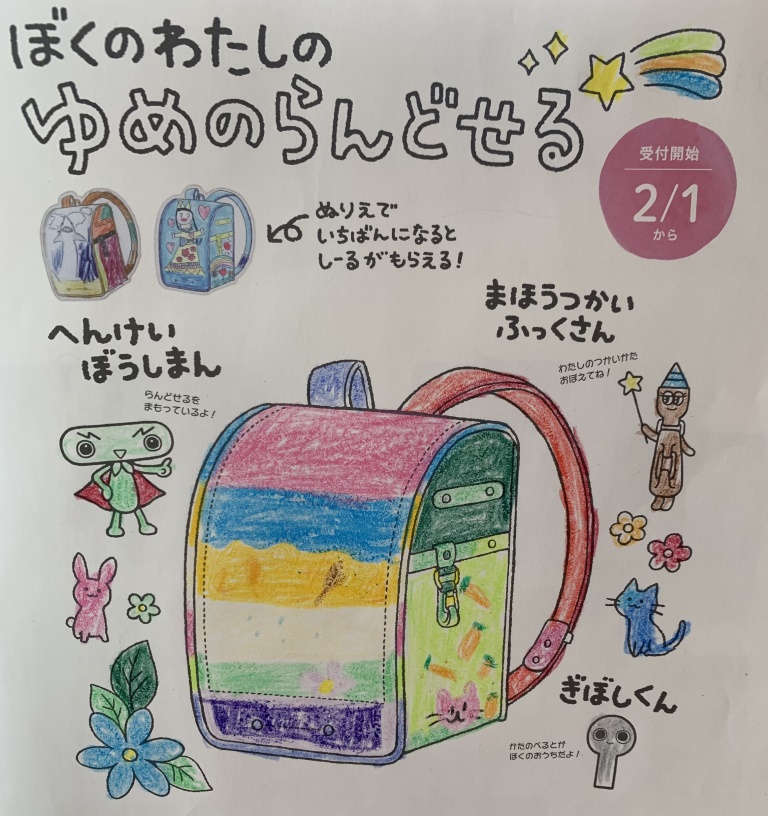 ぼくのわたしの
ゆめのらんどせる
受付開始
2/1
から
ぬりえで
いちばんになると
しーるがもらえる!
まほうつかい
ふっくさん
わたしのつかいかた
おぼえてね!
へんけい
ぼうしまん
らんどせるを
まもっているよ!
ぎぼしくん
かたのべるとが
ぼくのおうちだよ!